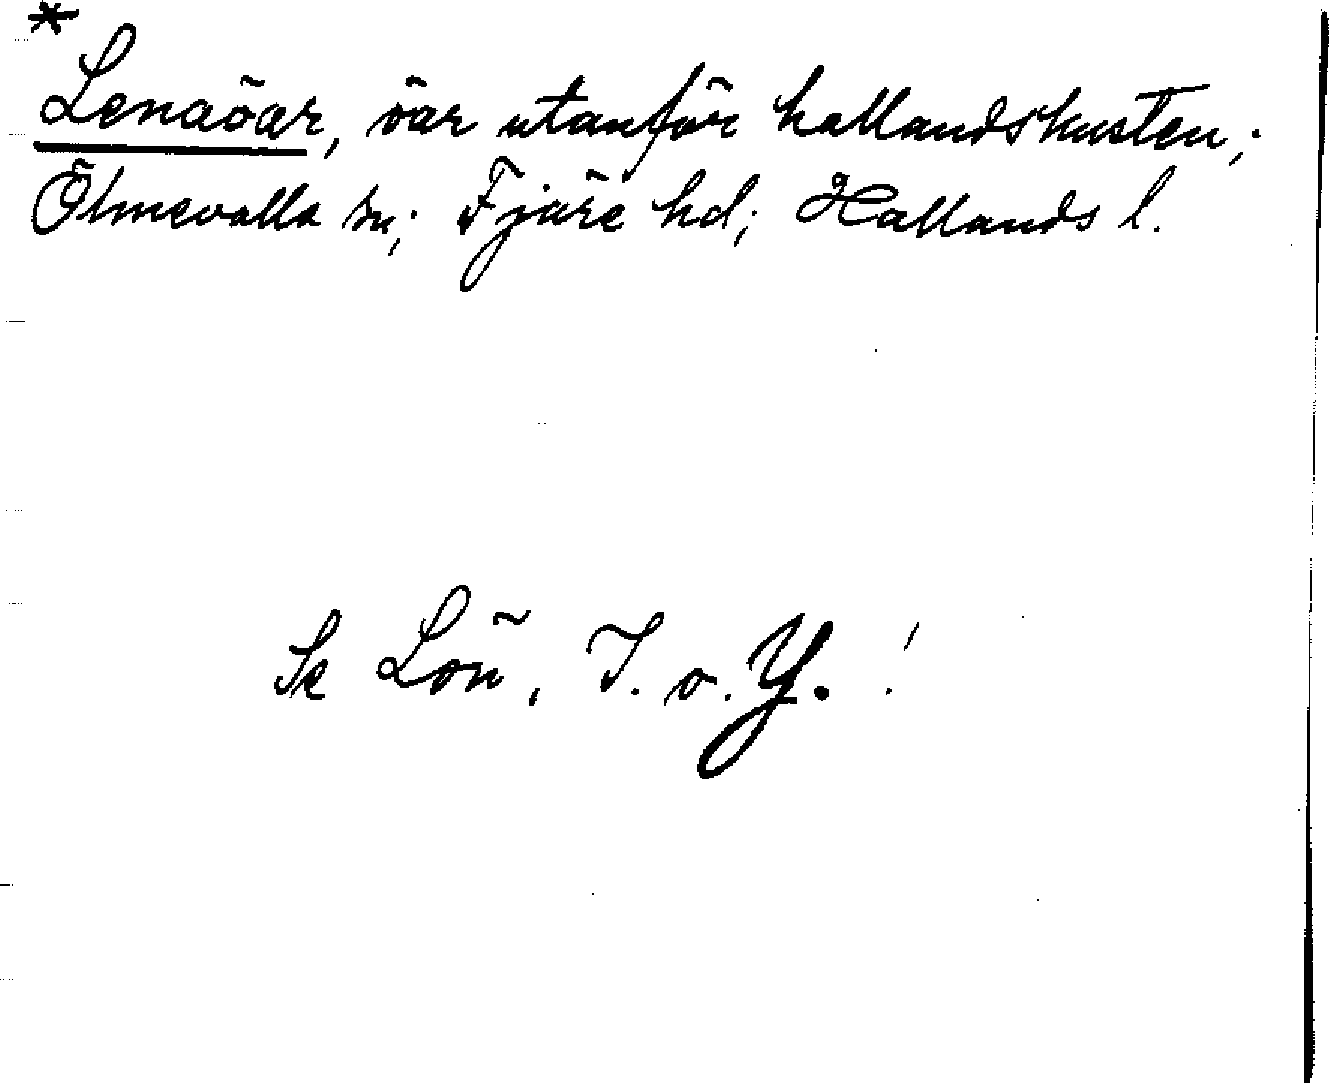 *
Lenaöar, öar utanför hallandskusten;
Ölmevalla sn; Fjäre hd; Hallands l.
Se Lön, I. o. Y. !